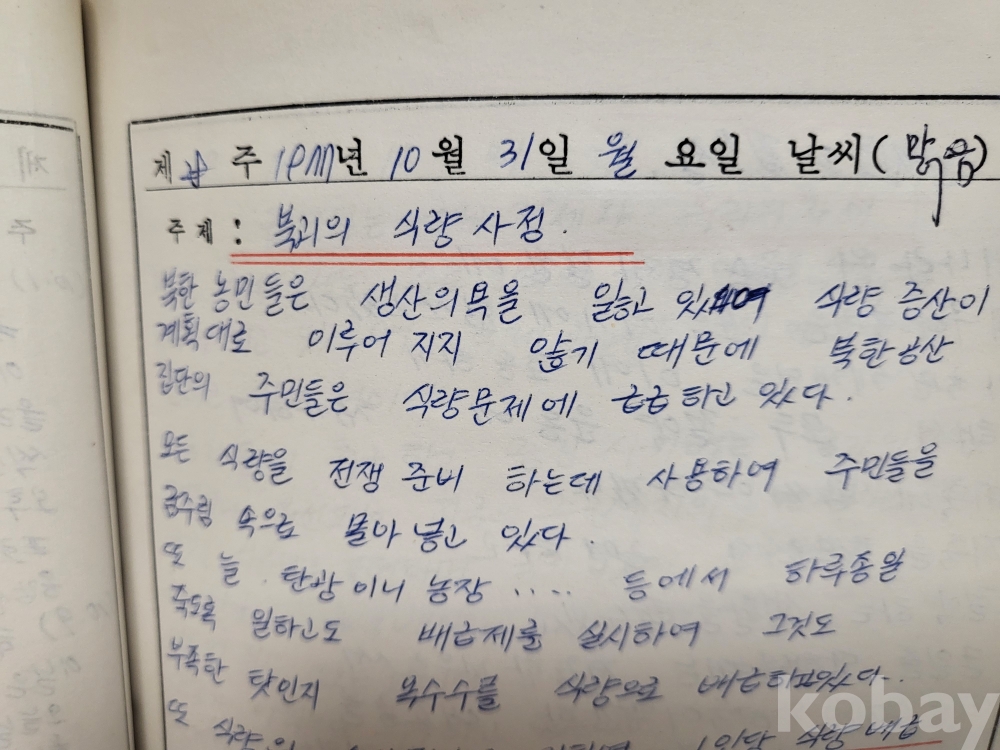 제 주 1977년 10월 31일 월요일 날씨(맑음)
주제: 북괴의 식량사정.
북한 농민들은 생산의욕을 잃고 있어 식량 증산이
계획대로 이루어 지지 않기 때문에 북한공산
집단의 주민들은 식량문제에 급급하고 있다.
모든 식량을 전쟁 준비 하는데 사용하여 주민들을
굼주림 속으로 몰아 넣고 있다.
또 늘 탄광이니 농장 ..... 등에서 하루종일
죽도록 일하고도 배급제를 실시하여 그것도
부족한 탓인지 옥수수를 식량으로 배급하고있다.
또 1인당 식량배급
kobay